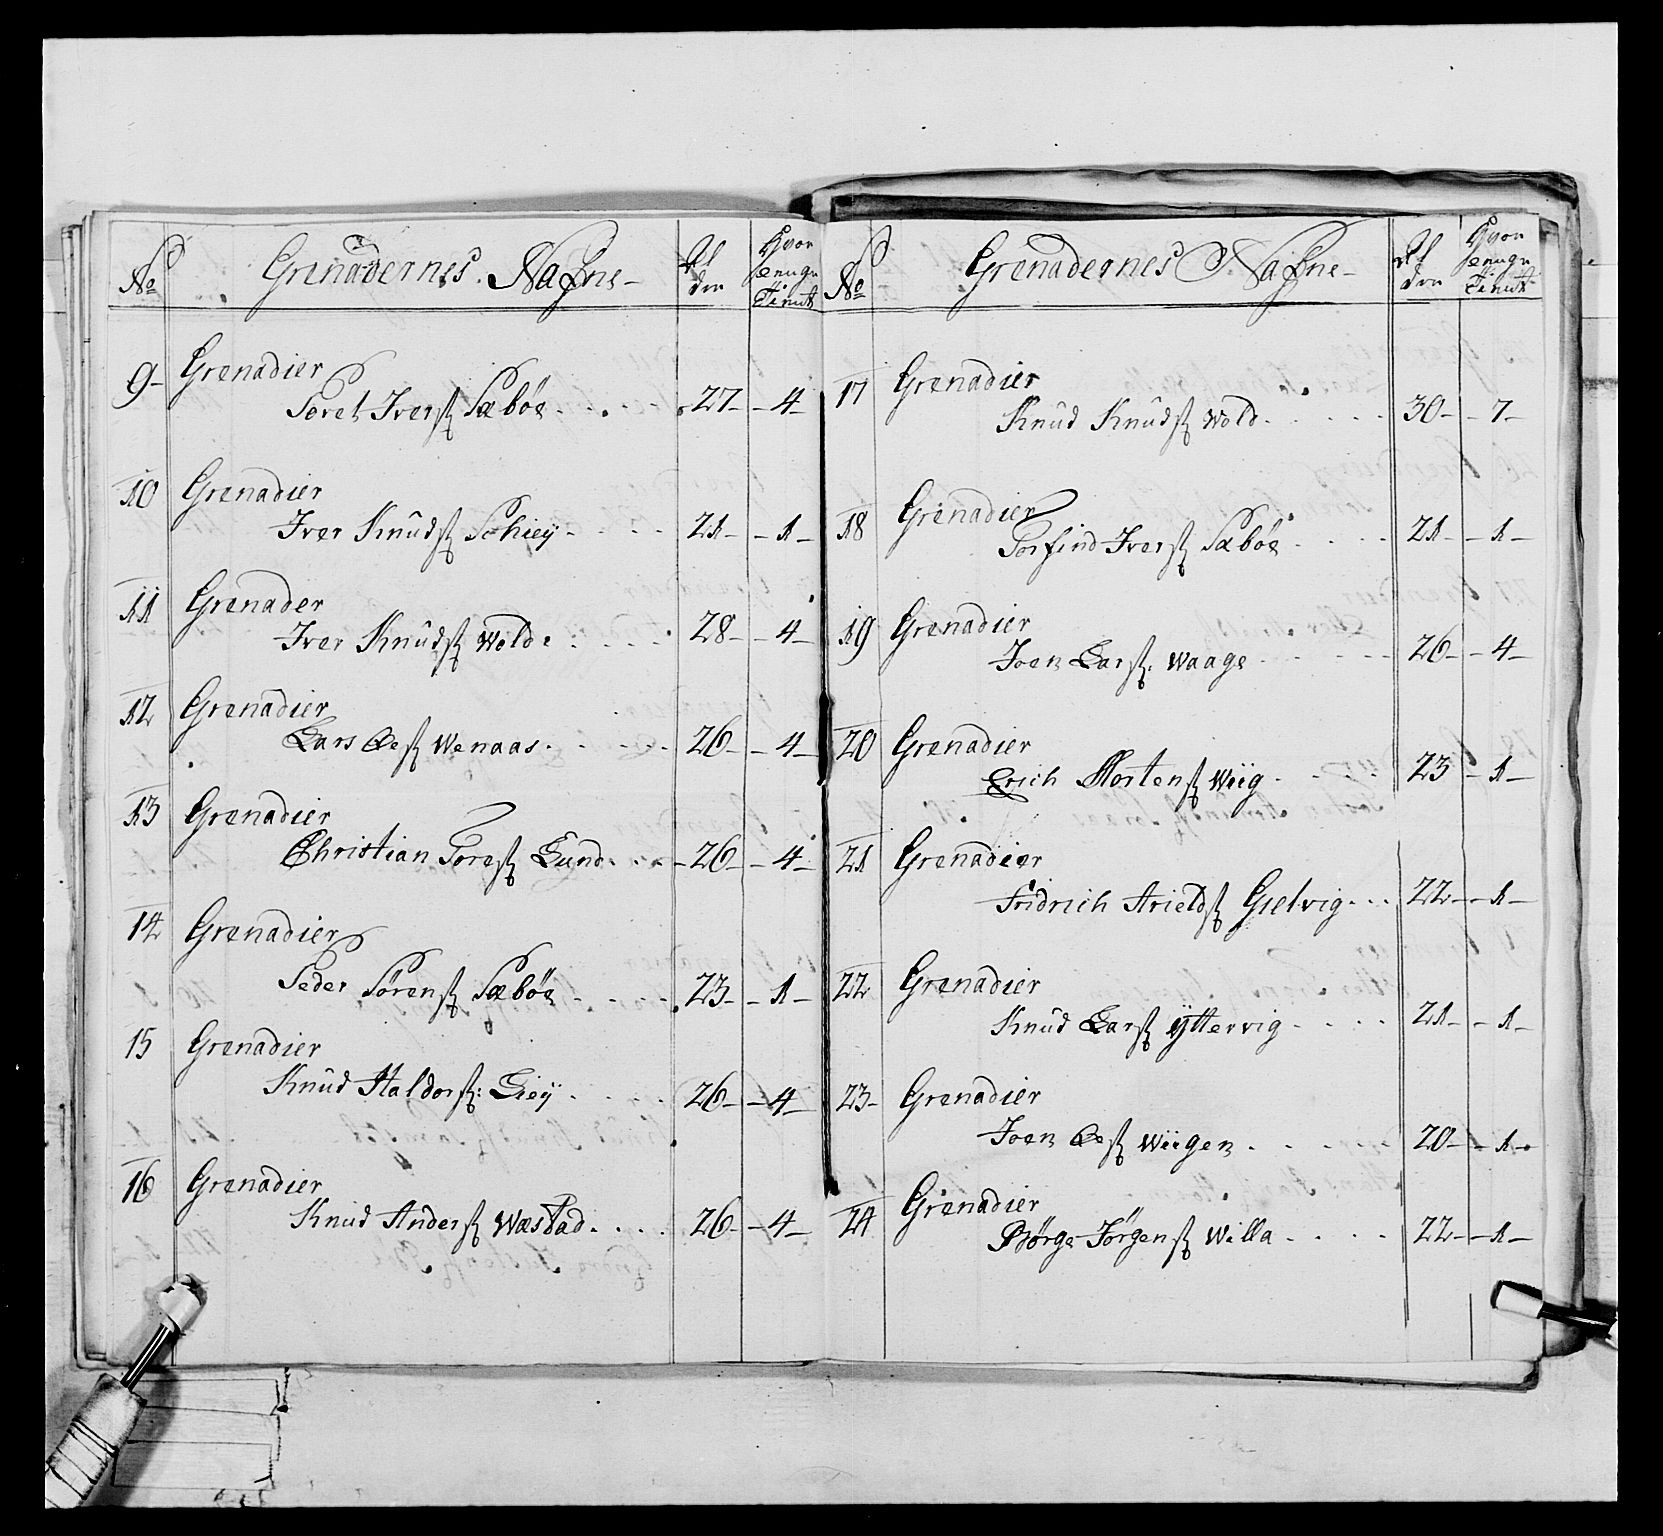 No Grenadernes Nafne Alder Hvor lenge Tient
9 Grenadier
Peret Iverss Sæbøe 27 4
10 Grenadier
Iver Knûdss Schiey 21 1
11 Grenader
Iver Knûdss Wold 28 4
12 Grenadier
Lars Oess Wenaas 26 4
13 Grenadier
Christian Toress Lund 26 4
14 Grenadier
Peder Sørenss Sæbøe 23 1
15 Grenadier
Knûd Haldorss: Liey 26 4
16 Grenadier
Knud Anderss Wæstad 26 4
No Grenadernes Nafne Alder Hvor lenge Tient
17 Grenadier
Knûd Knûdss Wold 30 7
18 Grenadier
Torfind Iverss Sæbøe 21 1
19 Grenadier
Joen Larss. Waage 26 4
20 Grenadier
Erich Mortenss Wiig 23 1
21 Grenadier
Fridrich Arieldss Gielvig 22 1
22 Grenadier
Knûd Larss Yttervig 21 1
23 Grenadier
Joen Oess Wiigen 20 1
24 Grenadier
Børge Jørgenss Willa 22 1